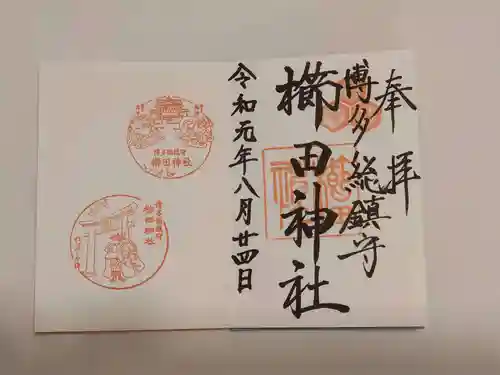 奉拝
博多総鎮守
櫛田神社
令和元年八月廿四日
博多総鎮守
櫛田神社
博多総鎮守
櫛田神社